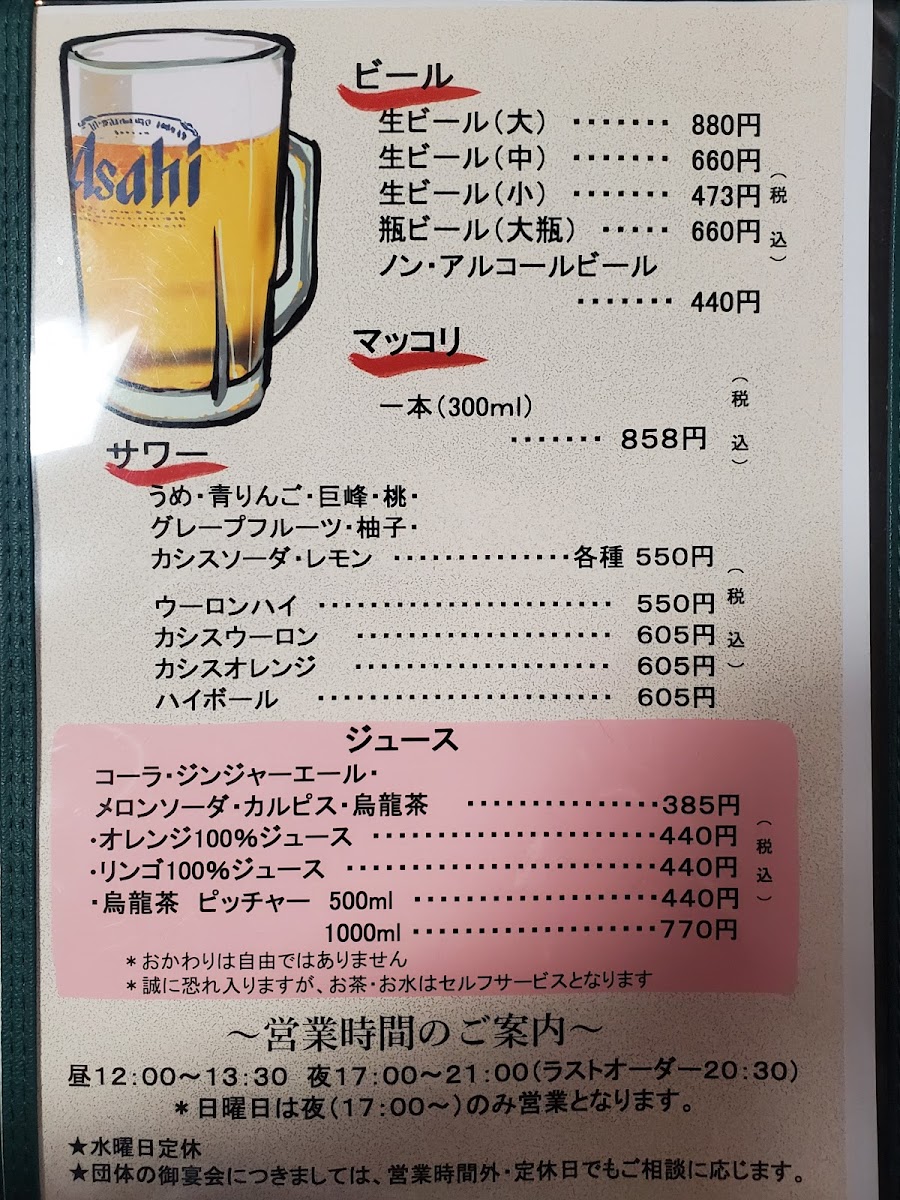 Asahi
ビール
生ビール（大） ・・・・・・・ 880円
生ビール（中） ・・・・・・・ 660円
生ビール（小） ・・・・・・・ 473円
瓶ビール（大瓶） ・・・・・ 660円
（税込）
ノン・アルコールビール
・・・・・・・ 440円
マッコリ
一本（300ml）
・・・・・・・ 858円
（税込）
サワー
うめ・青りんご・巨峰・桃・
グレープフルーツ・柚子・
カシスソーダ・レモン ・・・・・・・・・・・・・・各種 550円
ウーロンハイ ・・・・・・・・・・・・・・・・・・・・・・・ 550円
カシスウーロン ・・・・・・・・・・・・・・・・・・・・ 605円
カシスオレンジ ・・・・・・・・・・・・・・・・・・・・ 605円
ハイボール ・・・・・・・・・・・・・・・・・・・・・・・ 605円
（税込）
ジュース
コーラ・ジンジャーエール・
メロンソーダ・カルピス・烏龍茶 ・・・・・・・・・・・・・・・385円
・オレンジ100%ジュース ・・・・・・・・・・・・・・・・・・・・・・440円
・リンゴ100%ジュース ・・・・・・・・・・・・・・・・・・・・・・・・440円
・烏龍茶 ピッチャー 500ml ・・・・・・・・・・・・・・・・・・・440円
1000ml ・・・・・・・・・・・・・・・・・・・770円
（税込）
＊おかわりは自由ではありません
＊誠に恐れ入りますが、お茶・お水はセルフサービスとなります
～営業時間のご案内～
昼12:00～13:30 夜17:00～21:00（ラストオーダー20:30）
＊日曜日は夜（17:00～）のみ営業となります。
★水曜日定休
★団体の御宴会につきましては、営業時間外・定休日でもご相談に応じます。